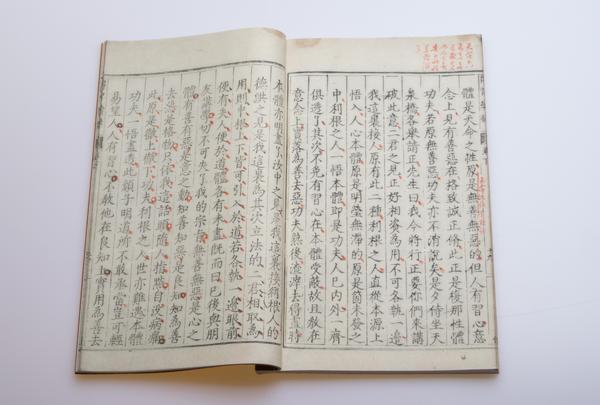 體是天命之性原是無善無惡的但人有習心意
念上見有善惡在格致誠正修此正是復那性體
功夫若原無善惡功夫亦不消說矣是夕侍坐天
泉橋各舉請正先生曰我今將行正要你們來講
破此意二君之見正好相資為用不可各執一邊
我這裏接人原有此二種利根之人直從本源上
悟入人心本體原是明瑩無滯的原是箇未發之
中利根之人一悟本體即是功夫人已內外一齊
俱透了其次不免有習心在本體受蔽故且教在
意念上實落為善去惡功夫熟後渣滓去得盡時
本體亦明盡了汝中之見是我這裏接利根人的
德洪之見是我這裏為其次立法的二君相取為
用則中根上下皆可引入於道若各執一邊眼前
便有失人便於道體各有未盡既而曰已後與朋
友講學切不可失了我的宗旨無善無惡是心之
體有善有惡是意之動知善知惡是良知為善
去惡是格物只依我這話頭隨人指點自沒病痛
此原是徹上徹下功夫利根之人世亦難遇本體
功夫一悟盡透此顏子明道所不敢承當豈可輕
易望人人有習心不教他在良知上實用為善去